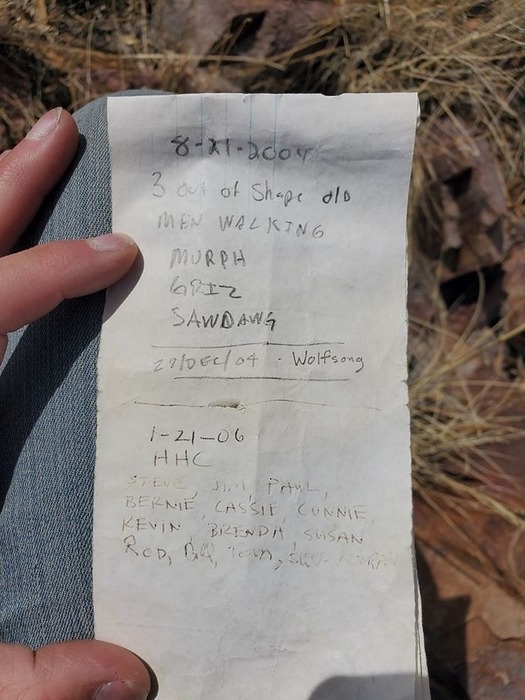 8-XI-2004
3 out of Shape old
MEN WALKING
MURPH
GRIZ
SAWDAWG
29/DEC/04 - Wolfsong
1-21-06
HHC
STEVE, JIM, PAUL,
BERNIE, CASSIE, CONNIE,
KEVIN, BRENDA, SUSAN
ROD,